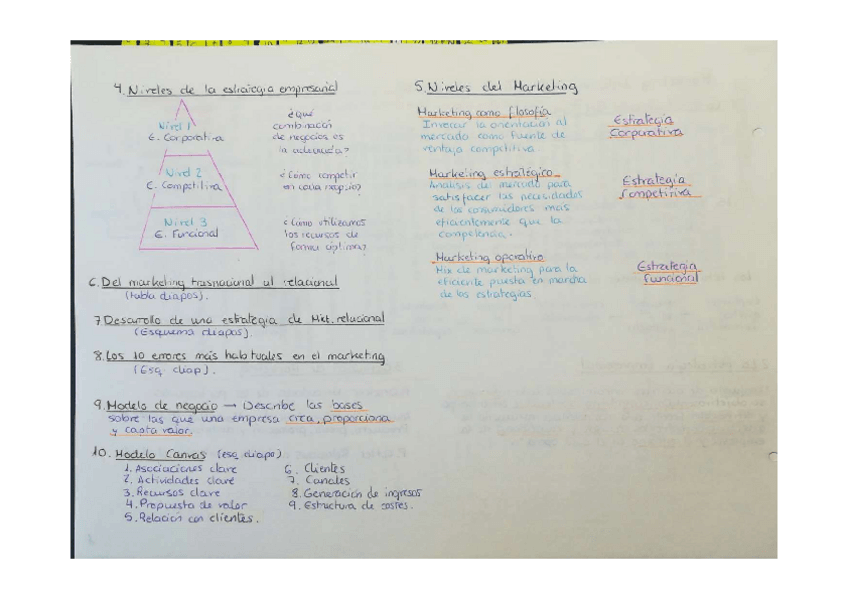 4. Niveles de la estrategia empresarial
Nivel 1
E. Corporativa
¿Qué
combinación
de negocios es
la adecuada?
Nivel 2
E. Competitiva
¿Cómo competir
en cada negocio?
Nivel 3
E. Funcional
¿Cómo utilizamos
los recursos de
forma óptima?
6. Del marketing trasnacional al relacional
(tabla diapos).
7 Desarrollo de una estrategia de Mkt. relacional
(Esquema diapos).
8. Los 10 errores más habituales en el marketing
(Esq. diap).
9. Modelo de negocio → Describe las bases
sobre las que una empresa crea, proporciona
y capta valor.
10. Modelo Canvas (esq. diapo)
1. Asociaciones clave
2. Actividades clave
3. Recursos clave
4. Propuesta de valor
5. Relación con clientes.
6. Clientes
7. Canales
8. Generación de ingresos
9. Estructura de costes.
5. Niveles del Marketing
Marketing como filosofía
Invocar la orientación al
mercado como fuente de
ventaja competitiva
Estrategia
Corporativa
Marketing estratégico
Análisis del mercado para
satisfacer las necesidades
de los consumidores más
eficientemente que la
competencia.
Estrategia
Competitiva
Marketing operativo
Mix de marketing para la
eficiente puesta en marcha
de las estrategias
Estrategia
funcional